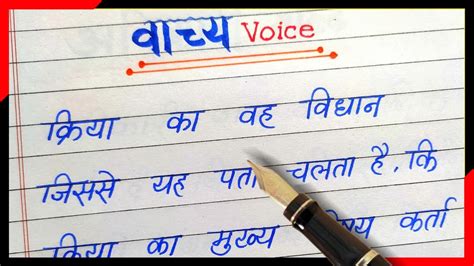 वाच्य Voice
क्रिया का वह विधान
जिससे यह पता चलता है, कि
क्रिया का मुख्य विषय कर्ता